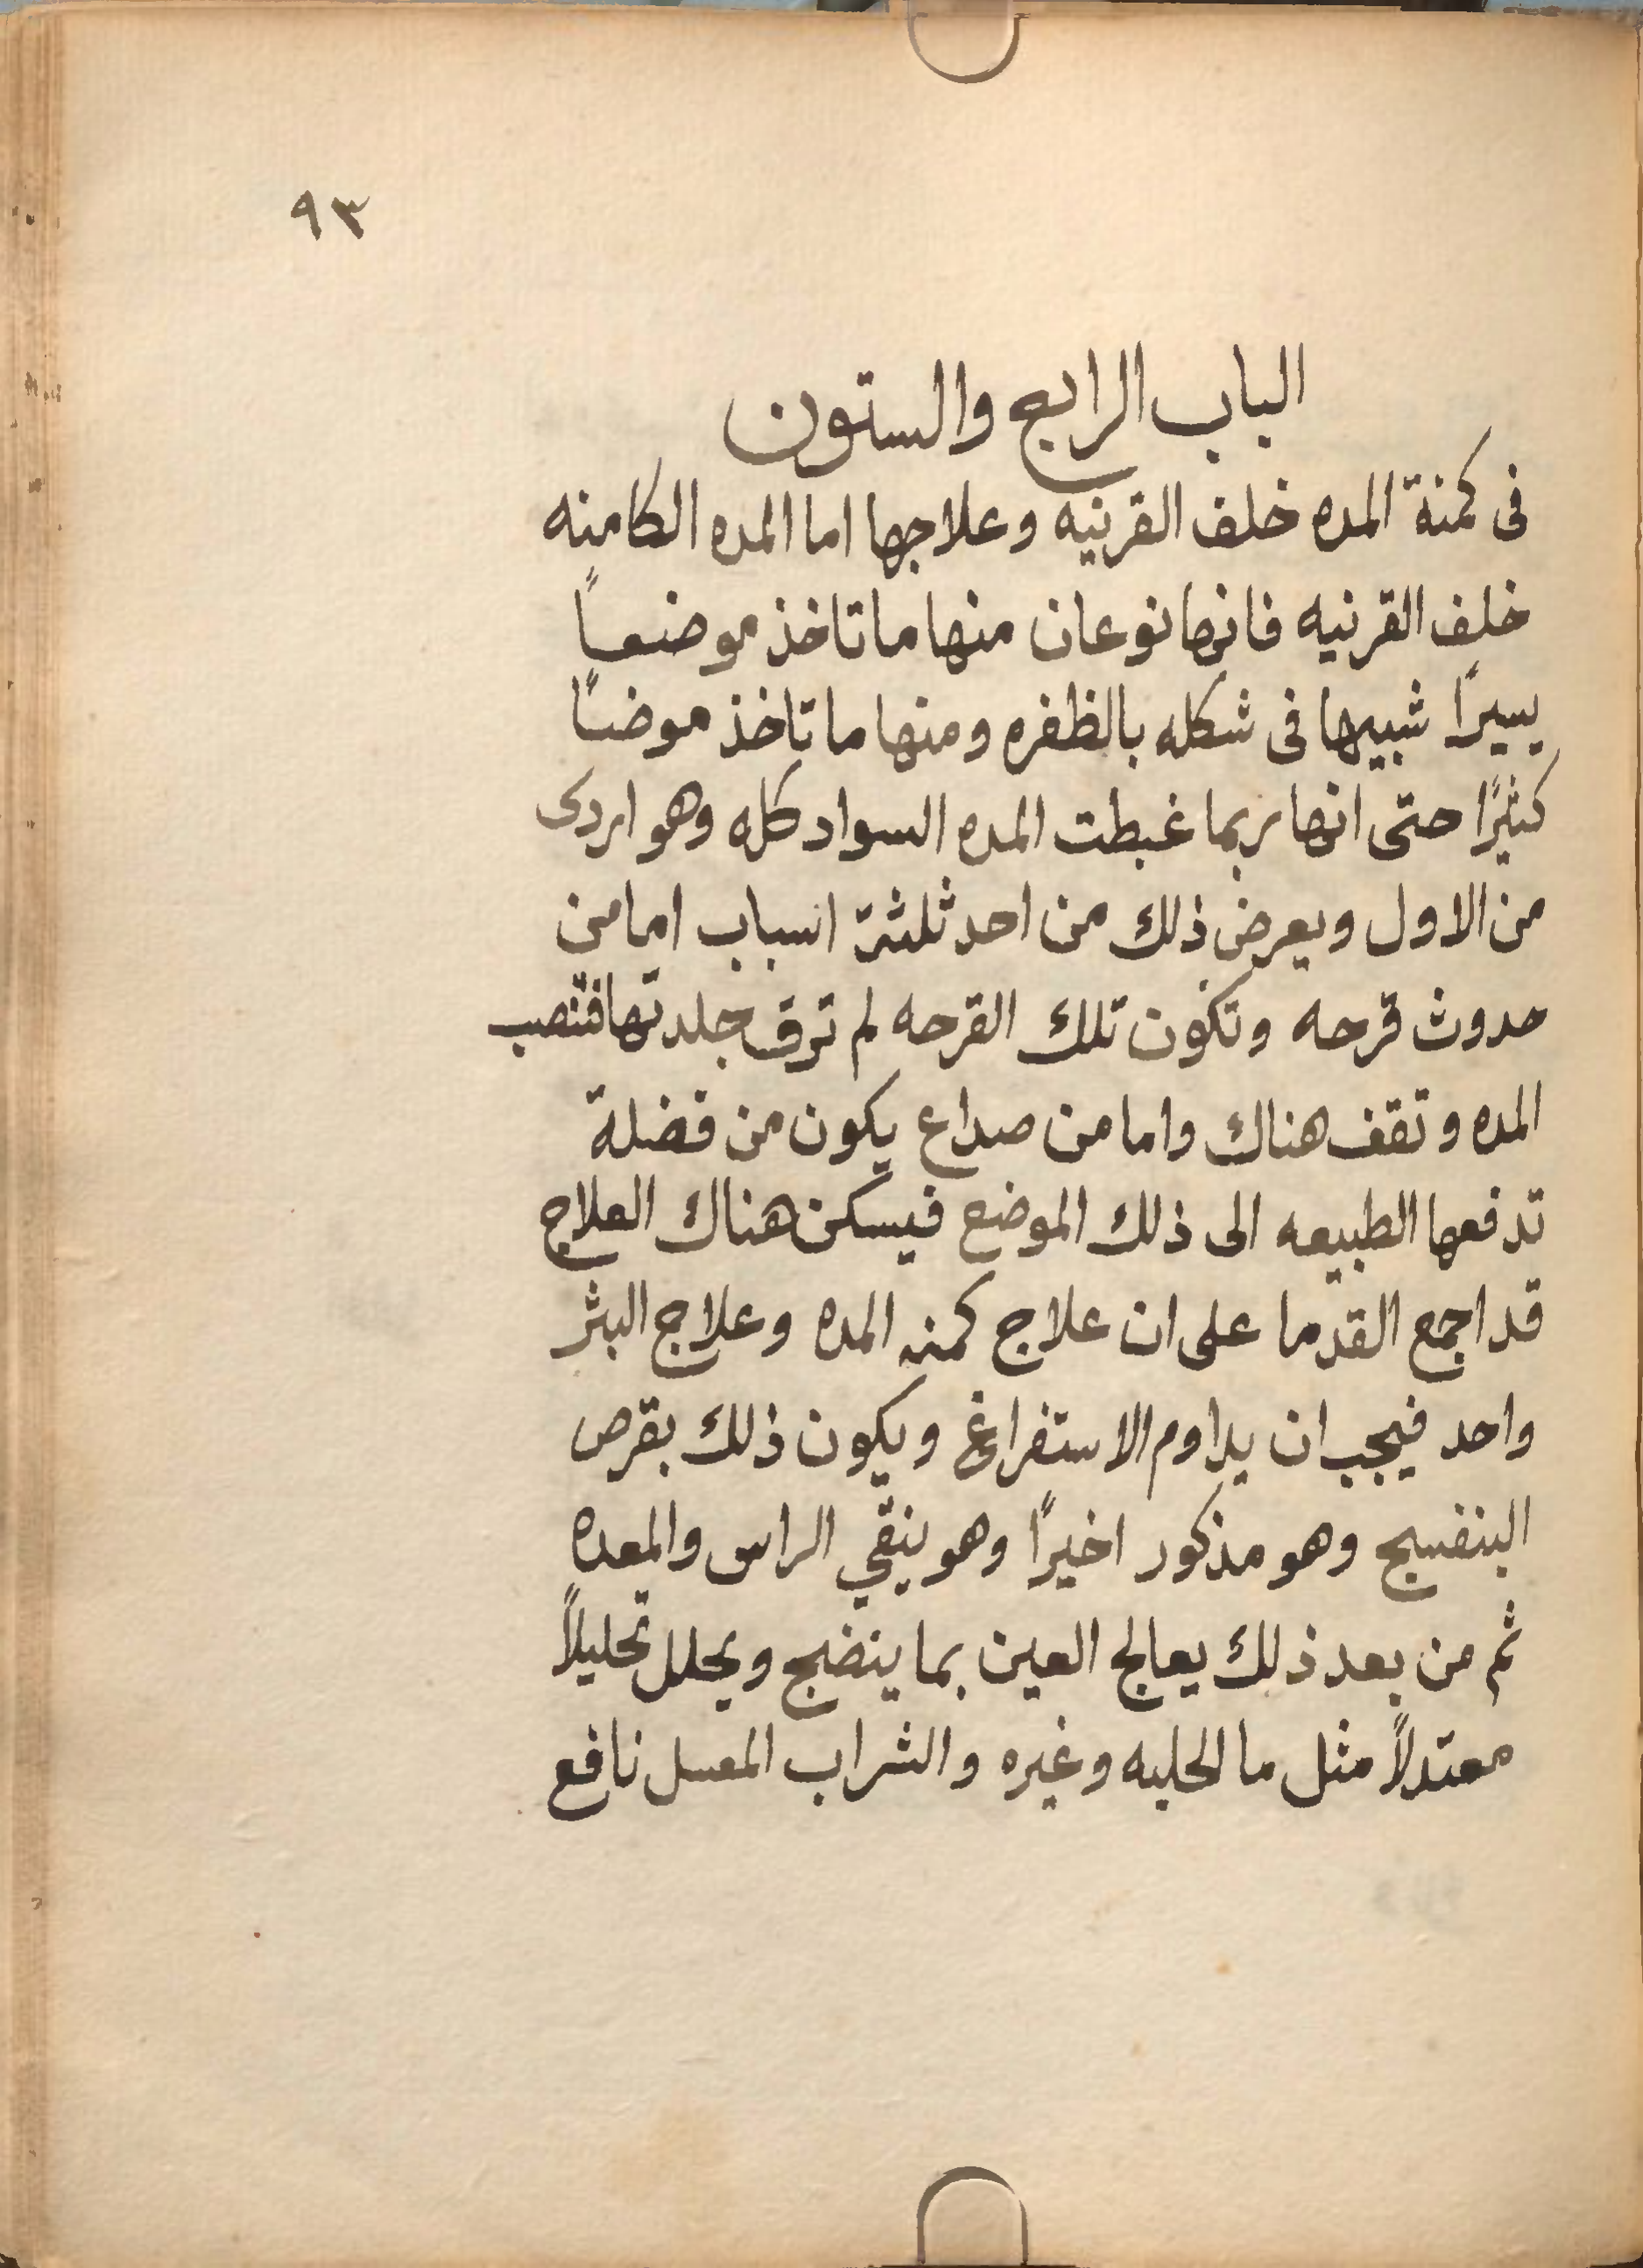 ٩٣
الباب الرابع والستون
فى كمنة المده خلف القرنيه وعلاجها اما المده الكامنه
خلف القرنيه فانها نوعان منها ما تاخذ موضعاً
يسيرًا شبيها فى شكله بالظفره ومنها ما تاخذ موضعاً
كثيرًا حتى انها ربما غبطت المده السواد كله وهو اردى
من الاول ويعرض ذلك من احد ثلثة اسباب اما من
حدوث قرحه وتكون تلك القرحه لم ترق جلدتها فتنصب
المده وتقف هناك واما من صداع يكون من فضلة
تدفعها الطبيعه الى ذلك الموضع فيسكن هناك العلاج
قد اجمع القدما على ان علاج كمنه المده وعلاج البثر
واحد فيجب ان يداوم الاستفراغ ويكون ذلك بقرص
البنفسج وهو مذكور اخيرًا وهو ينقي الراس والمعده
ثم من بعد ذلك يعالج العين بما ينضج ويحلل تحليلاً
معتدلاً مثل ما الحلبه وغيره والشراب المعسل نافع